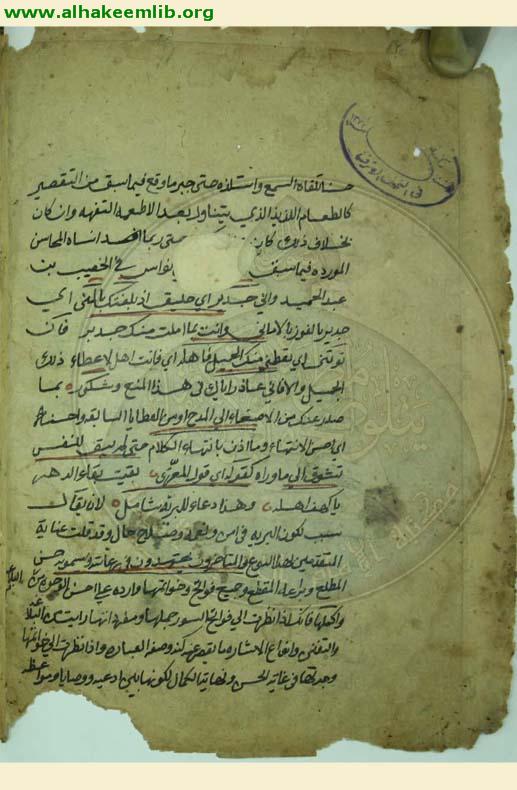 www.alhakeemlib.org
حسنا تلقاه السمع واستلذه حتى جبر ما وقع فيما سبق من التقصير
كالطعام اللذيذ الذي يتناول بعد الاطعمه التفهه وان كان
بخلاف ذلك كان حتى ربما افسد انساه المحاسن
المورده فيما سبق نواس في الخصيب بن
عبد الحميد واني جدير اي خليق اذ بلغتك بالمنى اي
جدير بالفوز بالاماني وانت بما املت منك جدير فان
تولني اي تعطني منك الجميل فاهله اي فانت اهل لاعطاء ذلك
الجميل والا فاني عاذر اياك في هذا المنع وشكور بما
صدر عنك من الاصغاء الى المدح او من العطايا السابقه واحسنه
اي احسن الانتهاء ما اذن بانتهاء الكلام حتى لم يبق للنفس
تشوق الى ما وراه كقوله اي قول المعري بقيت بقاء الدهر
يا كهف اهله وهذا دعاء للبريه شامل لان بقاك
سبب لكون البريه في امن ونعمه وصلاح حال وقد قلت عناية
المتقدمين بهذا النوع والمتاخرون يجتهدون في رعايته ويسمونه حسن
المطلع وبراعة المقطع وجميع فواتح السور وخواتمها وارده على احسن الوجوه من البلاغة
واكملها فانك اذا نظرت الى فواتح السور جملها ومفرداتها رايت من البلاغة
والتفنن وانواع الاشاره ما يقصر عن كنه وصفه العباره واذا نظرت الى خواتمها
وجدتها في غاية الحسن ونهاية الكمال لكونها بين ادعيه ووصايا ومواعظ